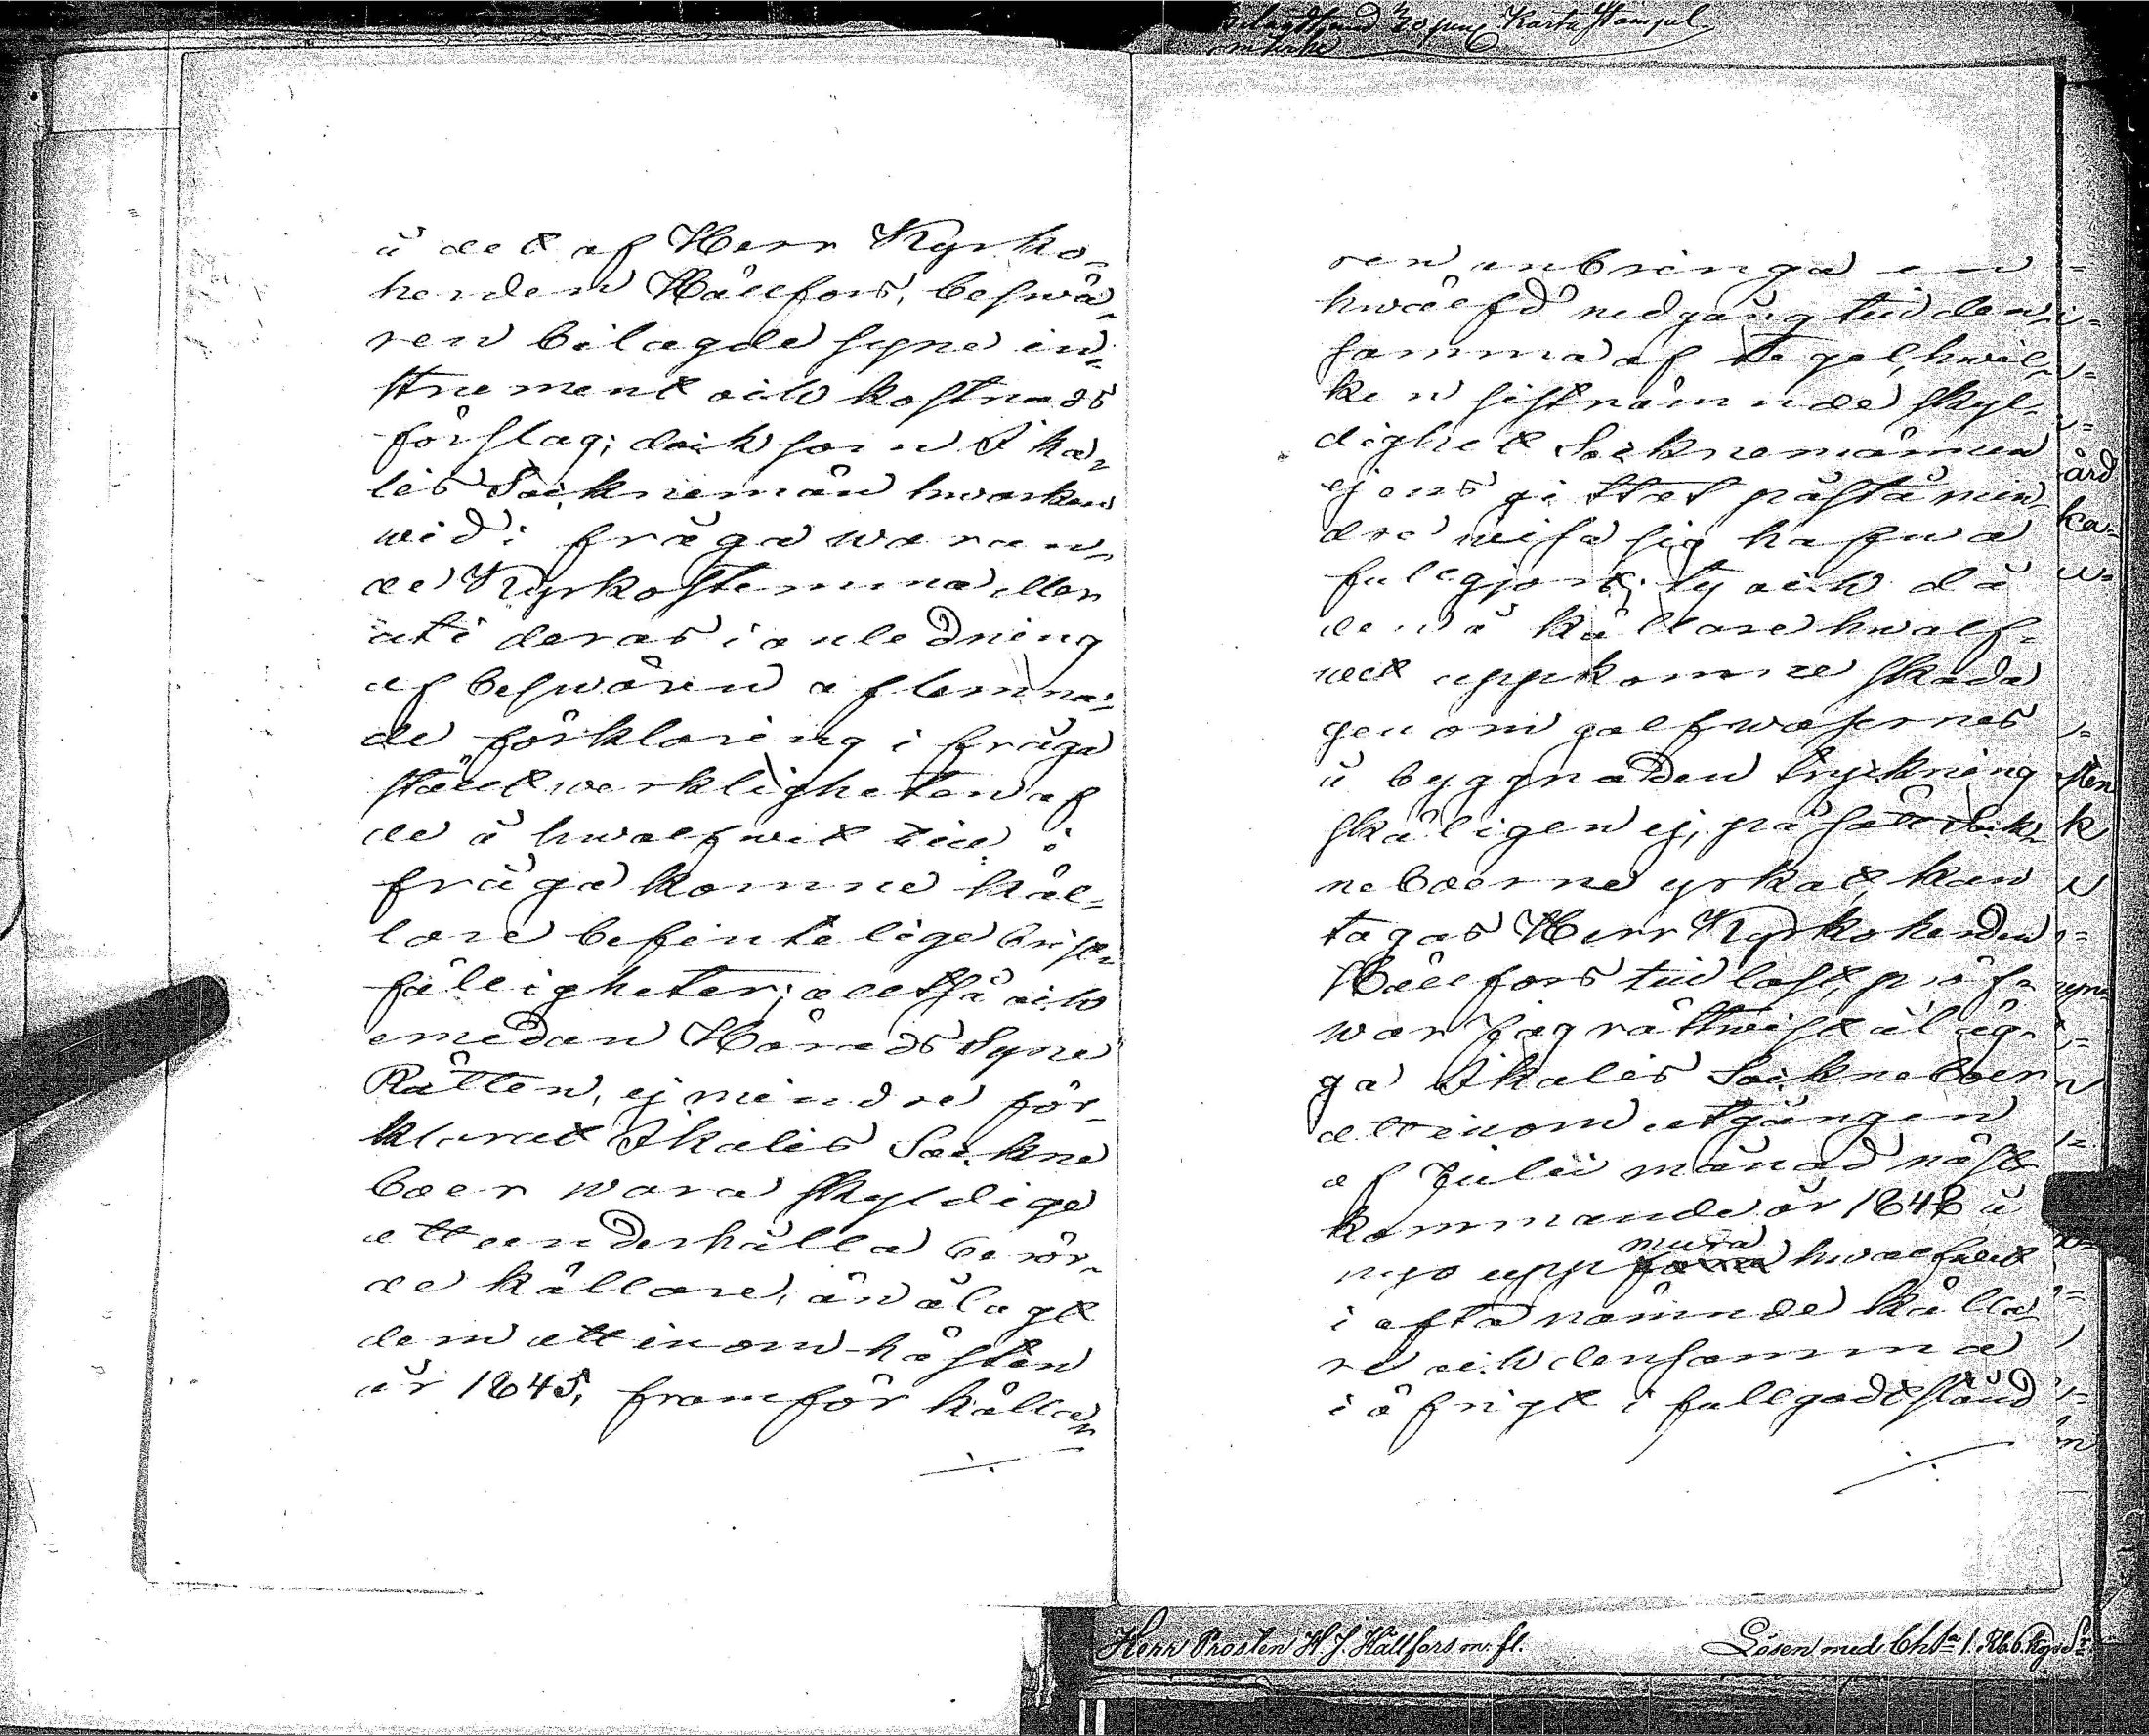 å det af Herr Kyrko-
herden Hällfors, beswä-
ren bilagde syne in-
strument och kostnads
förslag; dock som Ikа-
lis Socknemän hwarken
wid i fråga waran-
de Kyrkostemma eller
uti deras i anledning
af beswären aflemna-
de förklaring i fråga
stält werkligheten af
de å hwalfwet till i
fråga komne käl-
lare befintelige brist-
fälligheter; alltså och
emedan Härads Syne
Rätten, ej mindre för-
klarat Ikalis Sockne
boer wara skyldige
att underhålla berör-
de källare, än ålagt
dem att inom hösten
år 1845, framför källa-
ren anbringa en
hwälfd nedgång till den-
samma af tegel, hwil-
ken sistnämnde skyl-
dighet Socknemännen
ej ens gittat påstå min-
dre wisa sig hafwa
fullgjort; ty och då
den å källarehwalf-
wet uppkomne skada
genom golfwasernes
å byggnaden tryckning
skäligen ej, på sätt Sock-
neboerne yrkat, kan
tagas Herr Kyrkoherden
Hällfors till last, pröf-
war Jag rättwist åläg-
ga Ikalis Sockneboer
att inom utgången
af Julii månad näst-
kommande år 1848 å
mura
nyo upp hwalfwet
i ofta nämnde källa-
re och densamma
i öfrigt i fullgodt stånd
Karta Stämpel
Herr Prosten H. J. Hällfors m. fl.
Lösen med Chta 1. Rb. 6. kop. Sr